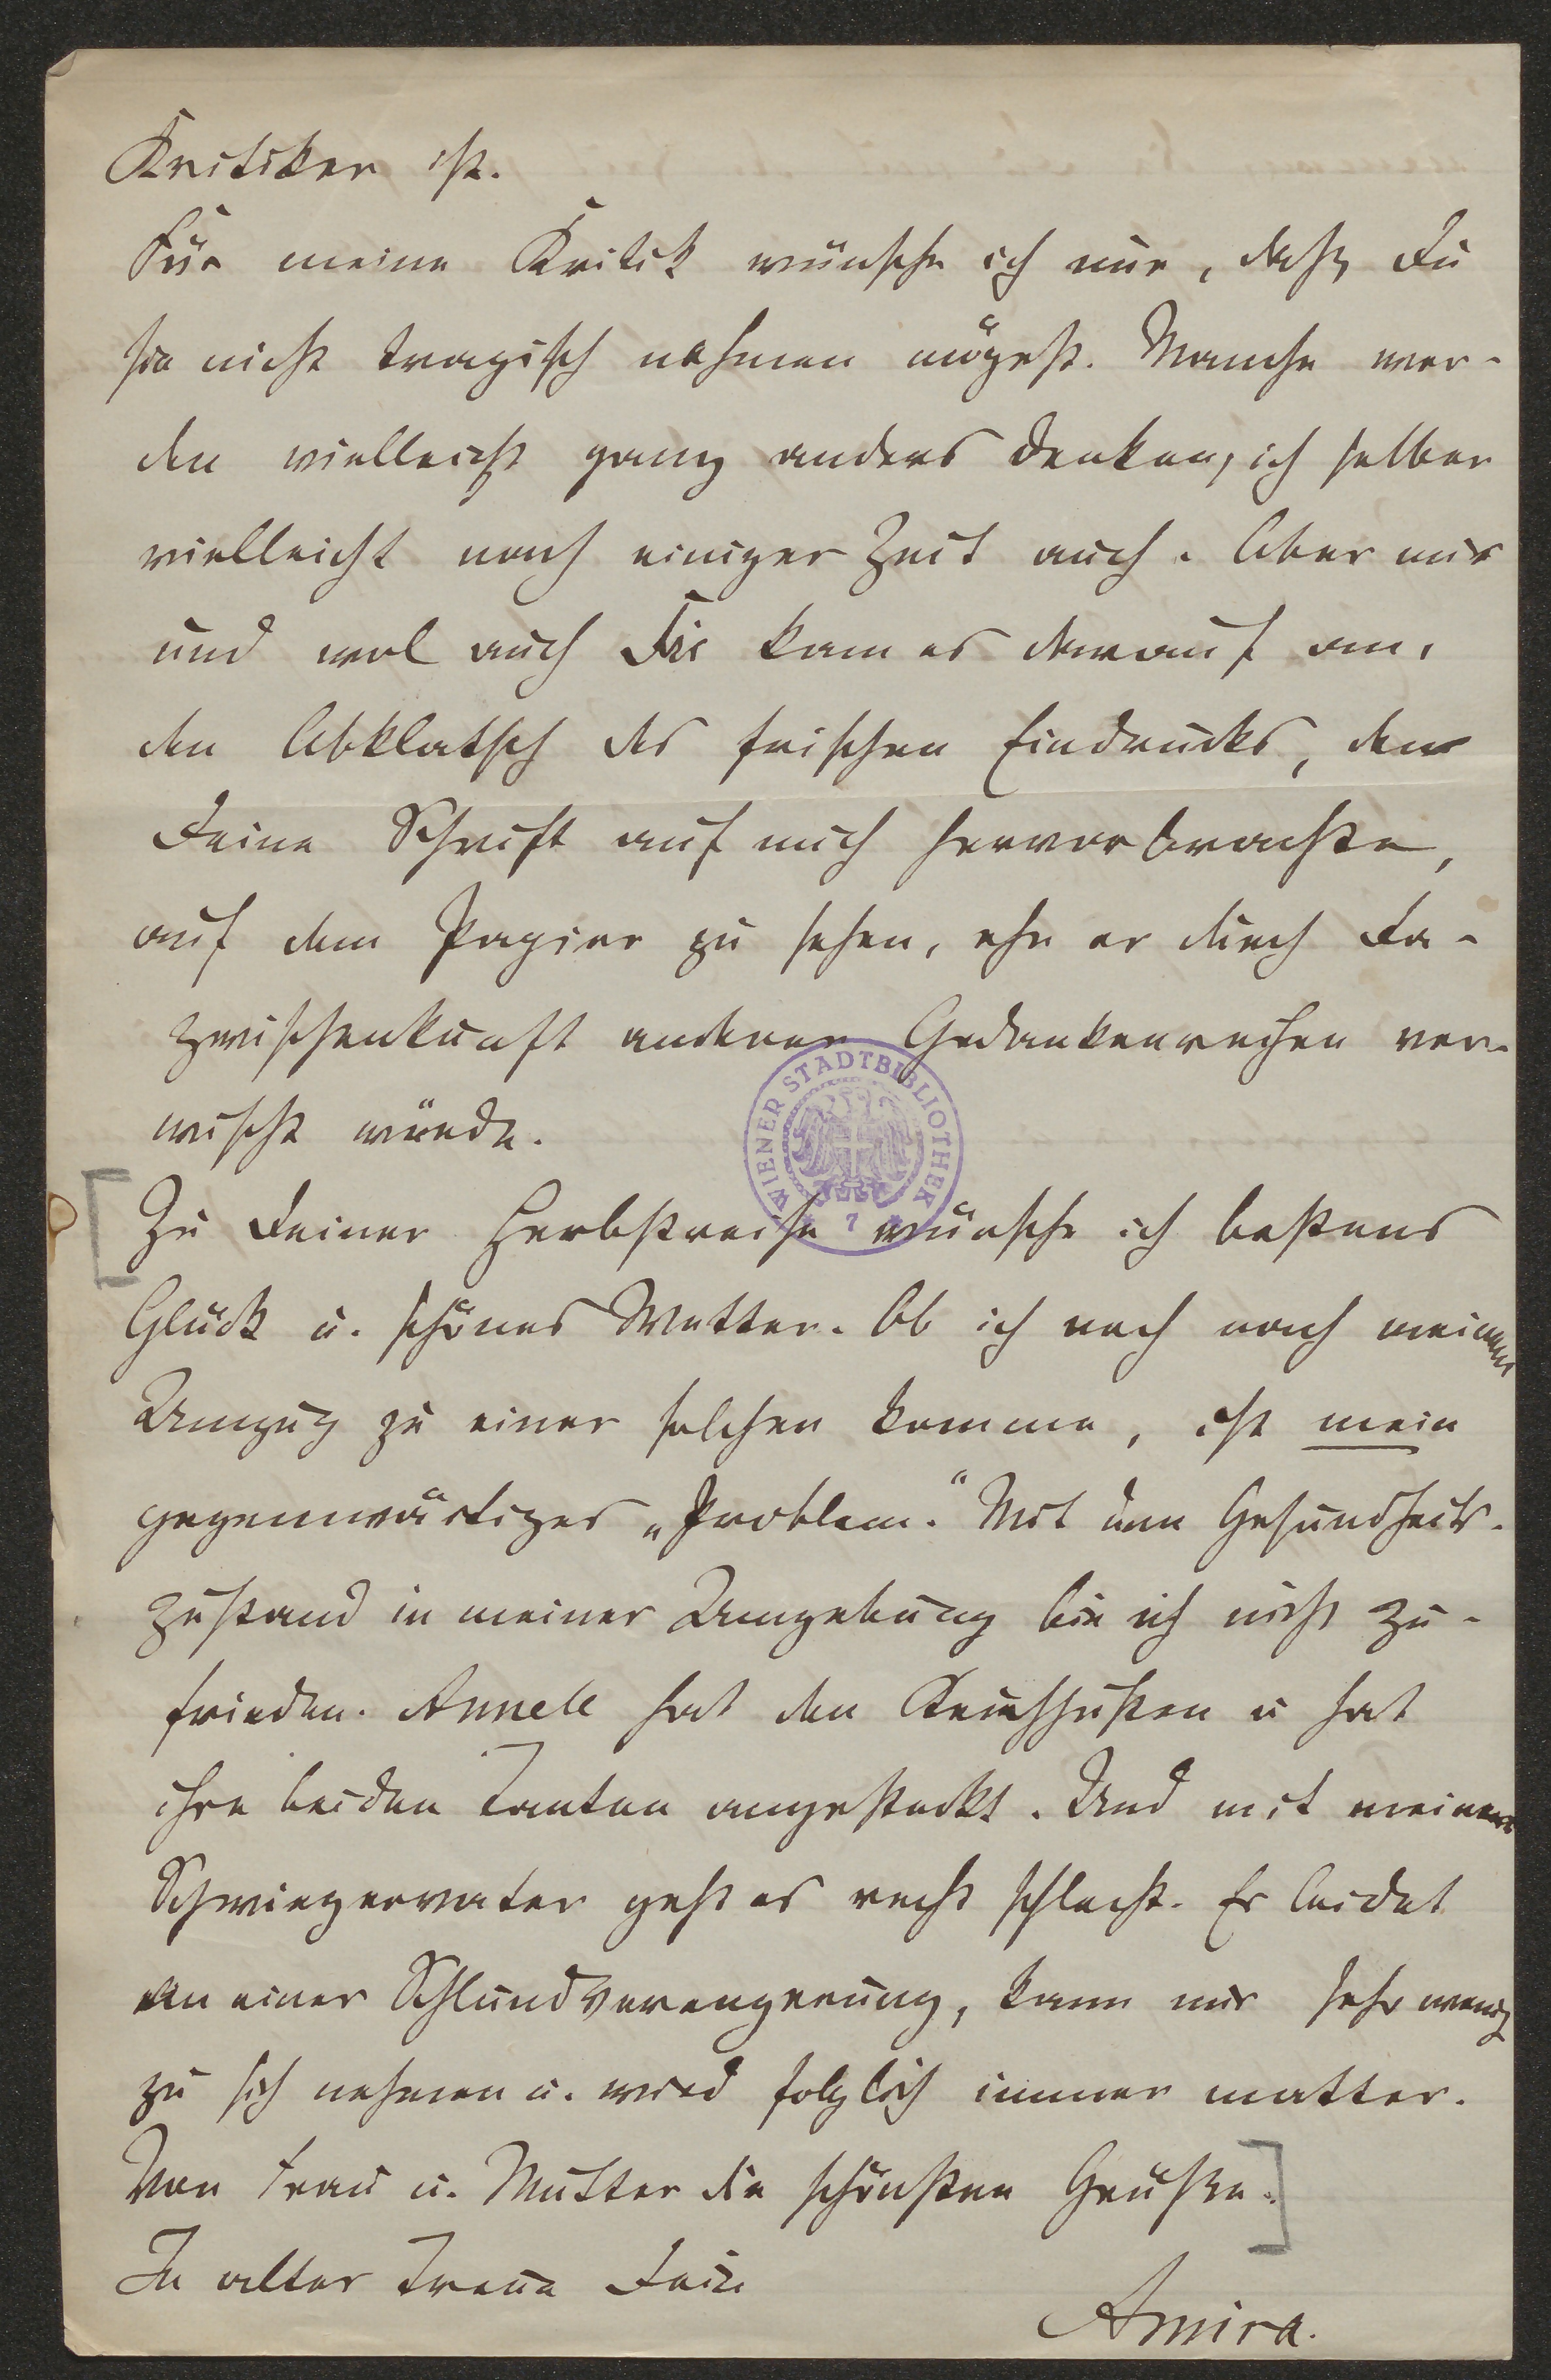 Kritiker ist.
Für meine Kritik wünsche ich nur, daß Du
sie nicht tragisch nehmen mögest. Manche wer-
den vielleicht ganz anders denken, ich selber
vielleicht nach einiger Zeit auch. Aber mir
und wol auch Dir kam es darauf an,
den Abklatsch des frischen Eindrucks, den
Deine Schrift auf mich hervorbrachte,
auf dem Papier zu sehen, ehe er durch Da-
zwischenkunft anderer Gedankenreihen ver-
wischt würde.
WIENER STADTBIBLIOTHEK
7
Zu Deiner Herbstreise wünsche ich bestens
Glück u. schönes Wetter. Ob ich noch nach meinem
Umzug zu einer solchen komme, ist mein
gegenwärtiges „Problem." Mit dem Gesundheits-
zustand in meiner Umgebung bin ich nicht zu-
frieden. Annele hat den Keuchhusten u hat
ihre beiden Tanten angesteckt. Und mit meinem
Schwiegervater geht es recht schlecht. Er leidet
an einer Schlundverengerung, kann nur sehr wenig
zu sich nehmen u. wird folglich immer matter.
Von Frau u. Mutter die schönsten Grüße.
In alter Treue Dein
Amira.